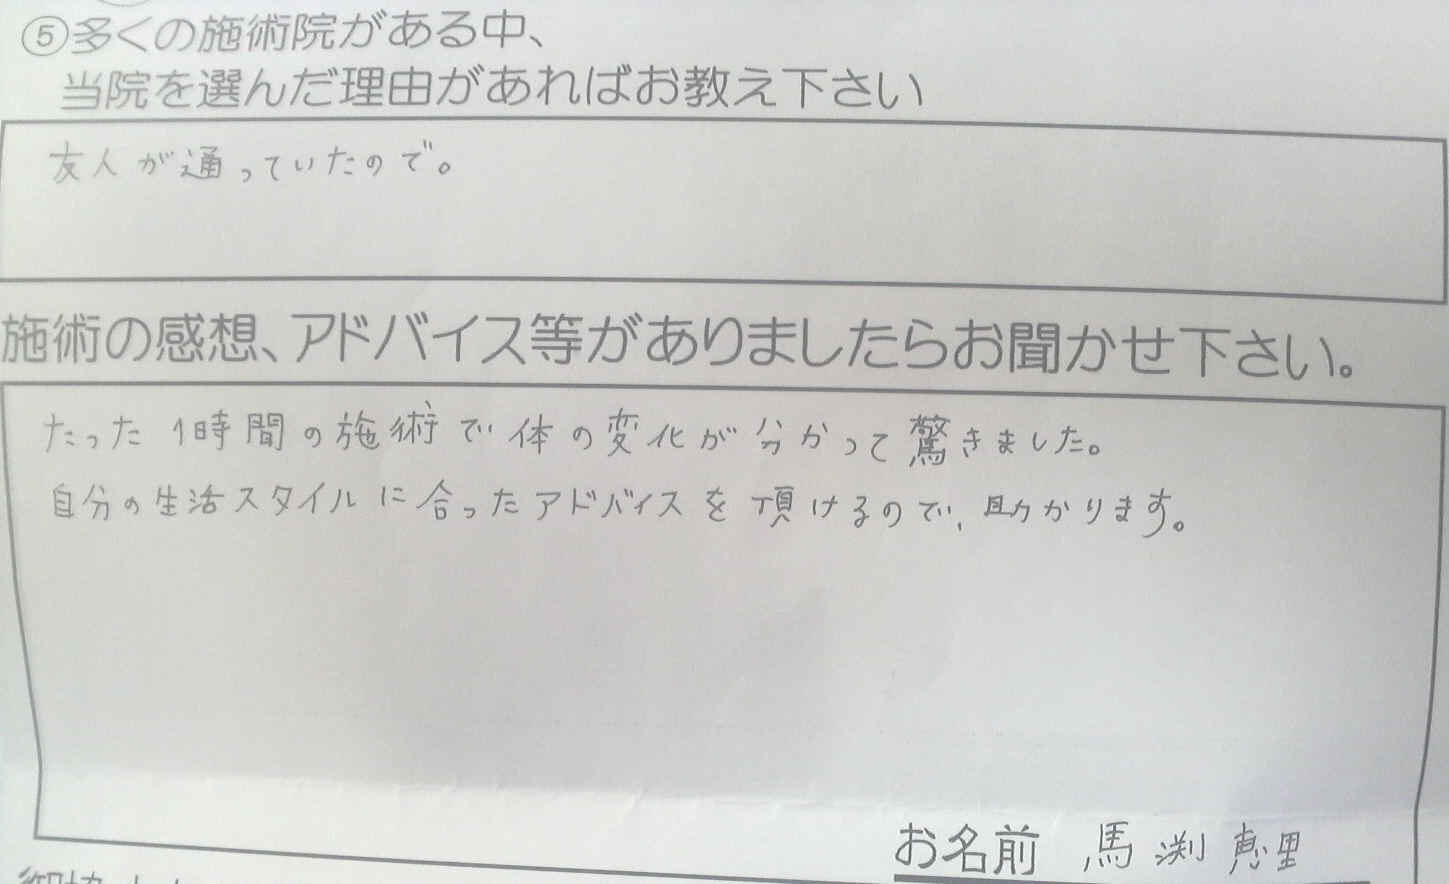 ⑤多くの施術院がある中、
当院を選んだ理由があればお教え下さい
友人が通っていたので。
施術の感想、アドバイス等がありましたらお聞かせ下さい。
たった1時間の施術で体の変化が分かって驚きました。
自分の生活スタイルに合ったアドバイスを頂けるので、助かります。
お名前 馬渕恵里